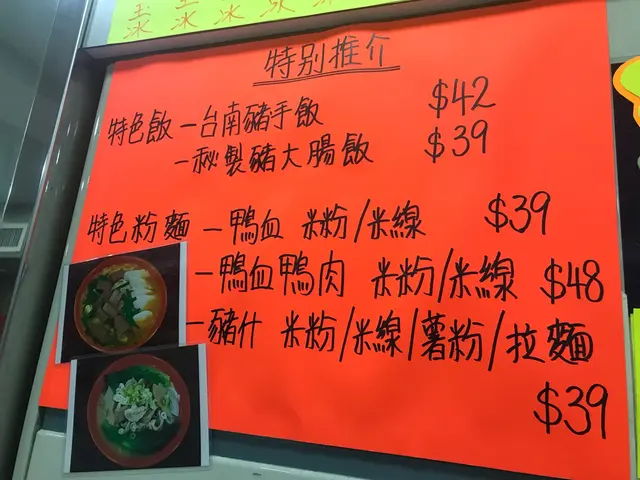 冰 冰 冰 冰 冰
特別推介
特色飯 – 台南豬手飯 $42
– 秘製豬大腸飯 $39
特色粉麵 – 鴨血 米粉/米線 $39
– 鴨血鴨肉 米粉/米線 $48
– 豬什 米粉/米線/薯粉/拉麵
$39